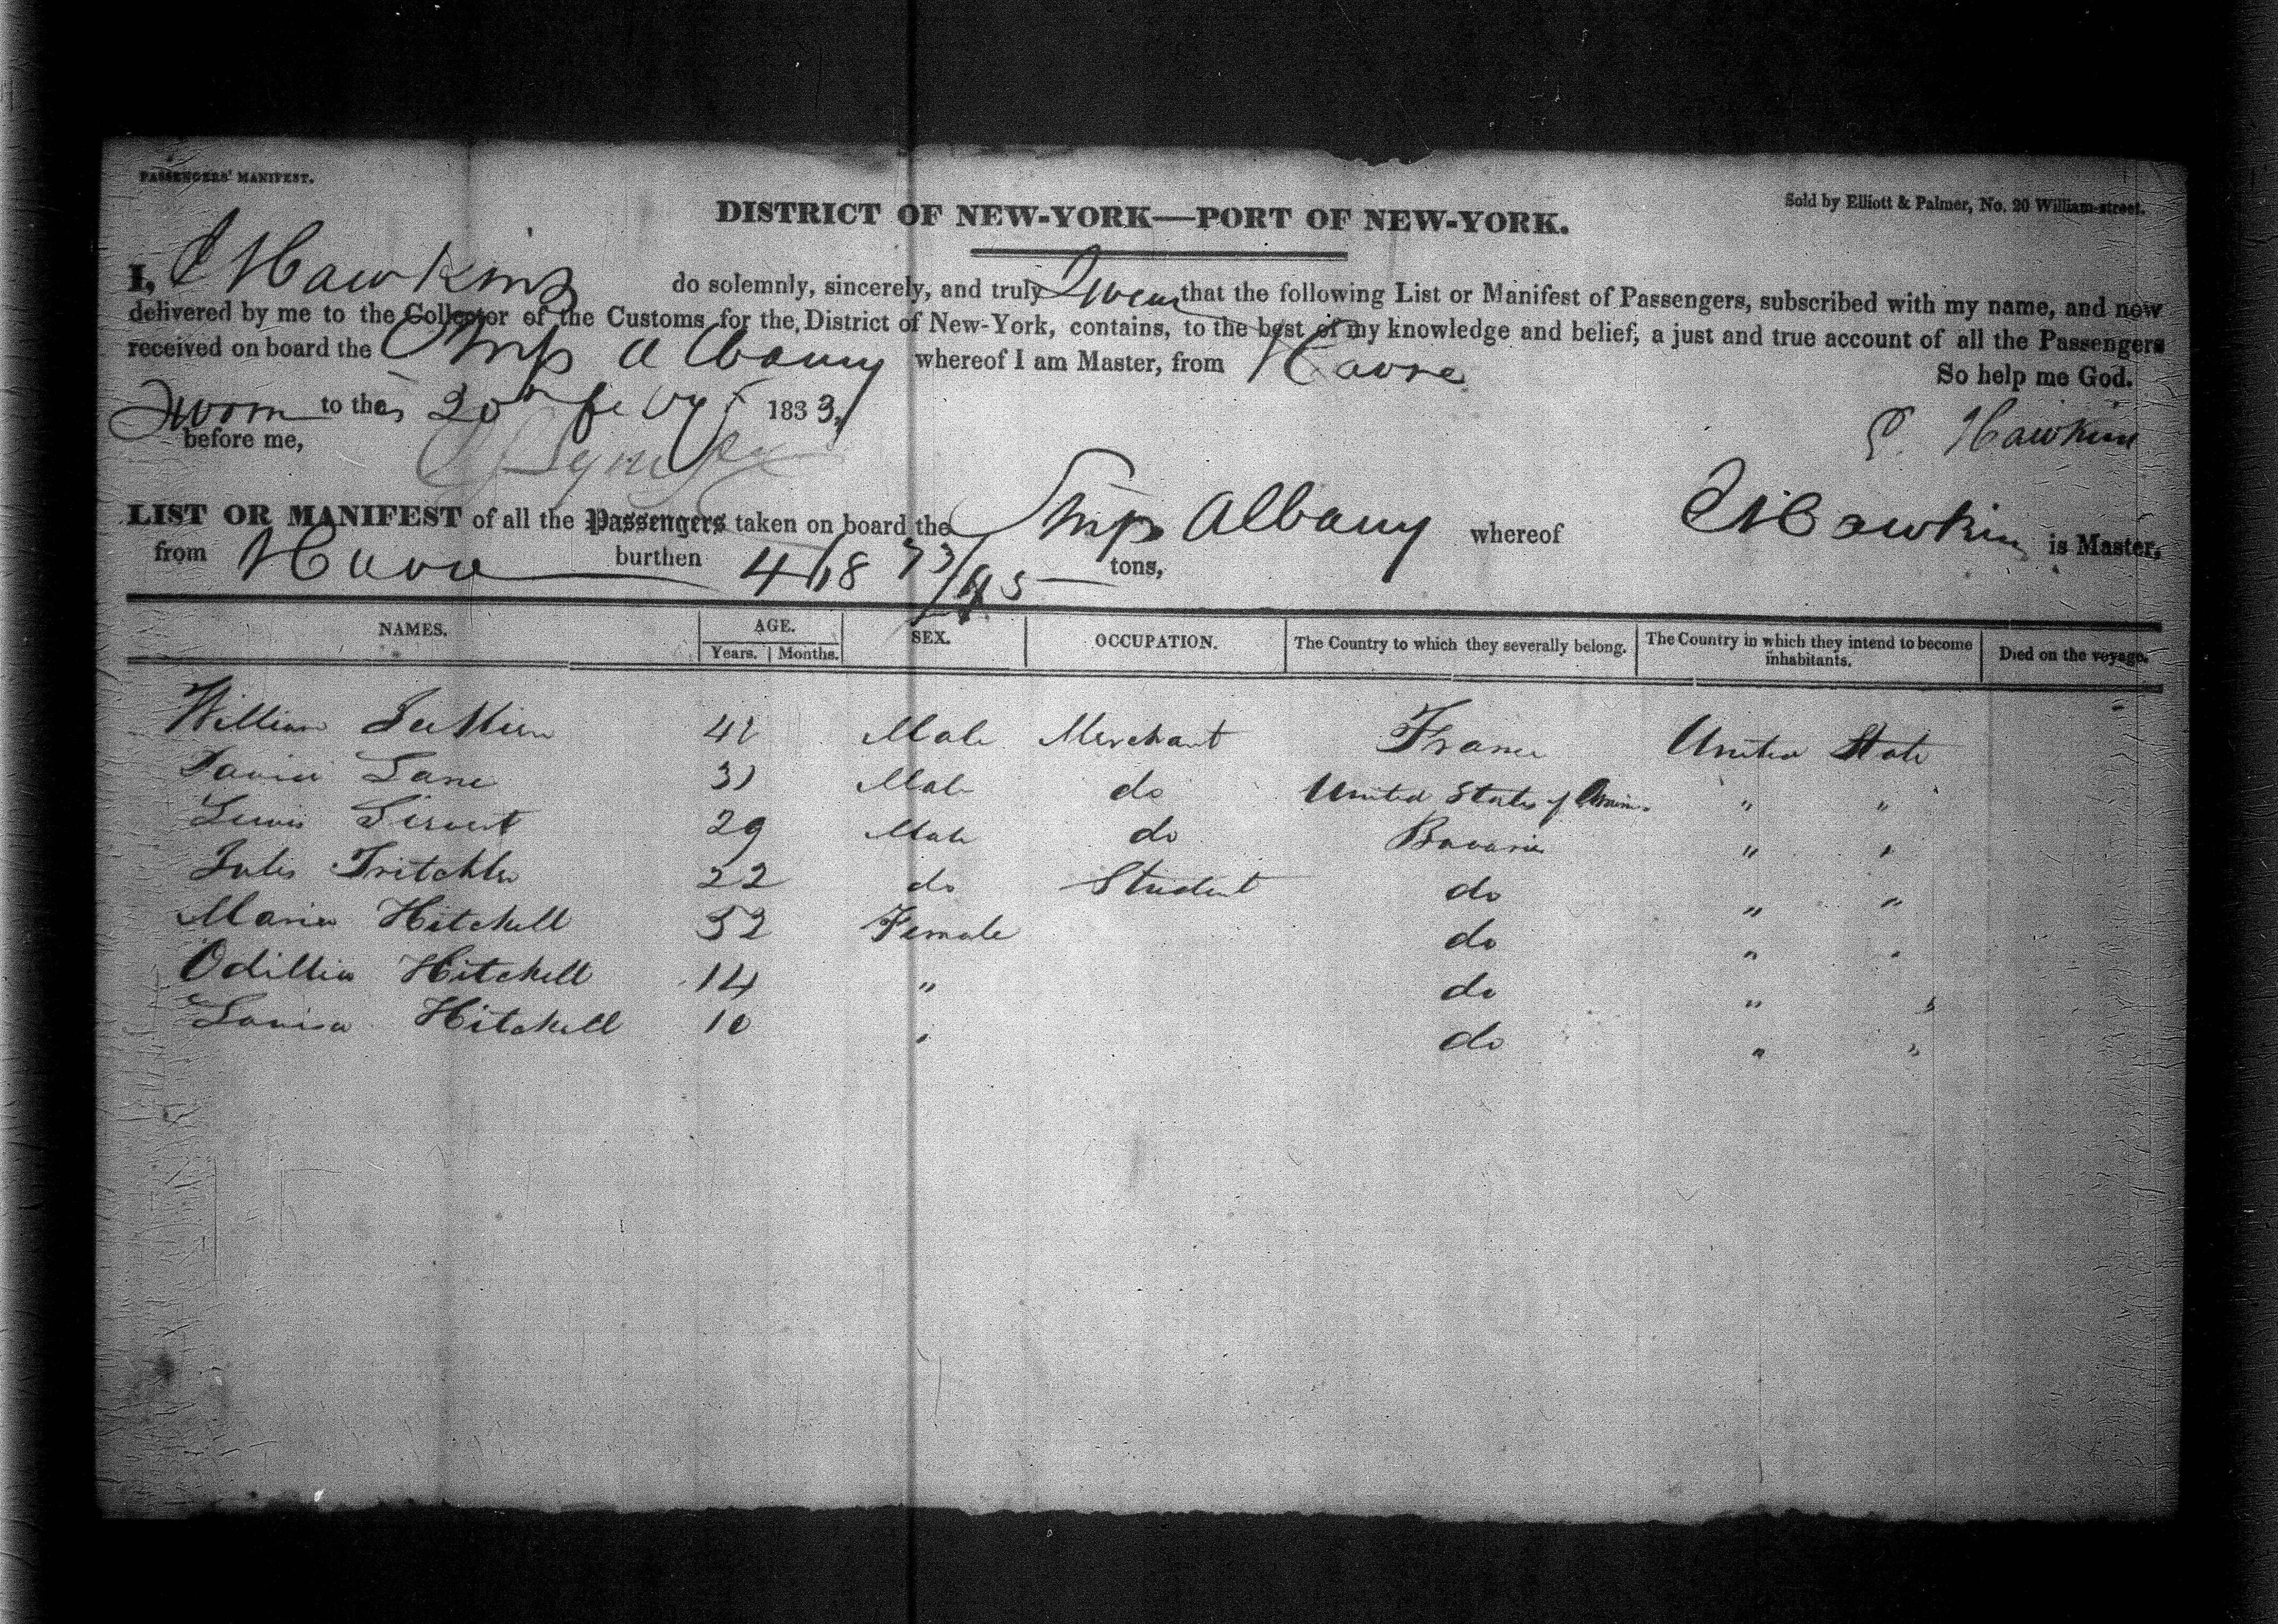 PASSENGERS' MANIFEST.
Sold by Elliott & Palmer, No. 20 William-street.
DISTRICT OF NEW-YORK—PORT OF NEW-YORK.
I, Hawkins do solemnly, sincerely, and truly Swear that the following List or Manifest of Passengers, subscribed with my name, and now
delivered by me to the Collector of the Customs for the District of New-York, contains, to the best of my knowledge and belief, a just and true account of all the Passengers
received on board the Ship Albany whereof I am Master, from Havre
So help me God.
Sworn to the 20th Feby 1833
before me,
Hawkins
LIST OR MANIFEST of all the Passengers taken on board the Ship Albany whereof Hawkins is Master,
from Havre burthen 468 73/95 tons,
NAMES. AGE. SEX. OCCUPATION. The Country to which they severally belong. The Country in which they intend to become inhabitants. Died on the voyage.
Years. Months.
William Male Merchant France United State
Lane Male do United States of " "
Lewis 29 Male do Bavaria " "
Jules Tritchler 22 do Student do " "
Maria Hitchell 52 Female do " "
Odillia Hitchell 14 " do " "
Louisa Hitchell 10 " do " "